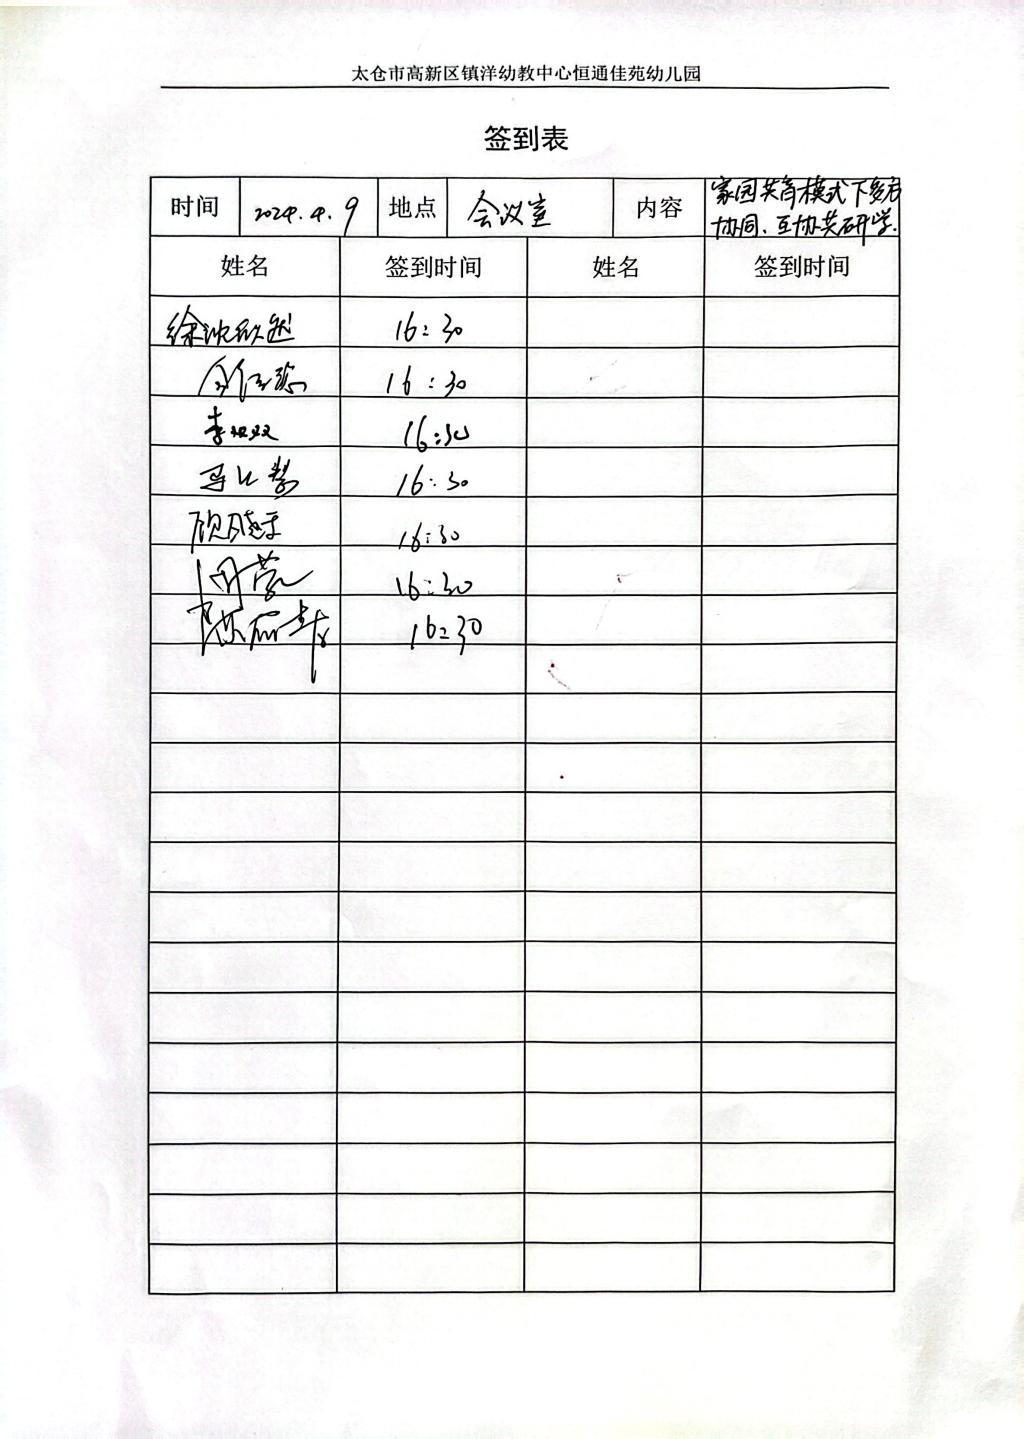 太仓市高新区镇洋幼教中心恒通佳苑幼儿园
签到表
时间 2024.4.9 地点 会议室 内容 家园共育模式下多方
协同、互协共研学.
姓名 签到时间 姓名 签到时间
徐沈欣然 16:30
16:30
李双双 16:30
16:30
顾晓玉 16:30
16:30
16:30